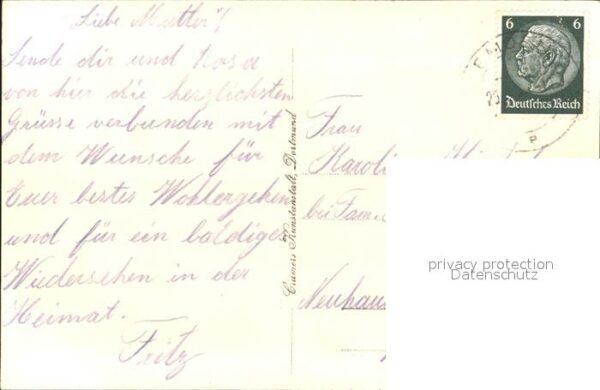 Liebe Mutter!
Sende dir und Rosa
von hier die herzlichsten
Grüsse verbunden mit
dem Wunsche für
Euer bestes Wohlergehen
und für ein baldiges
Wiedersehen in der
Heimat.
Fritz
Cramers Kunstanstalt, Dortmund
6 6
Deutsches Reich
Frau
bei Fam.
Neuhaus
privacy protection
Datenschutz